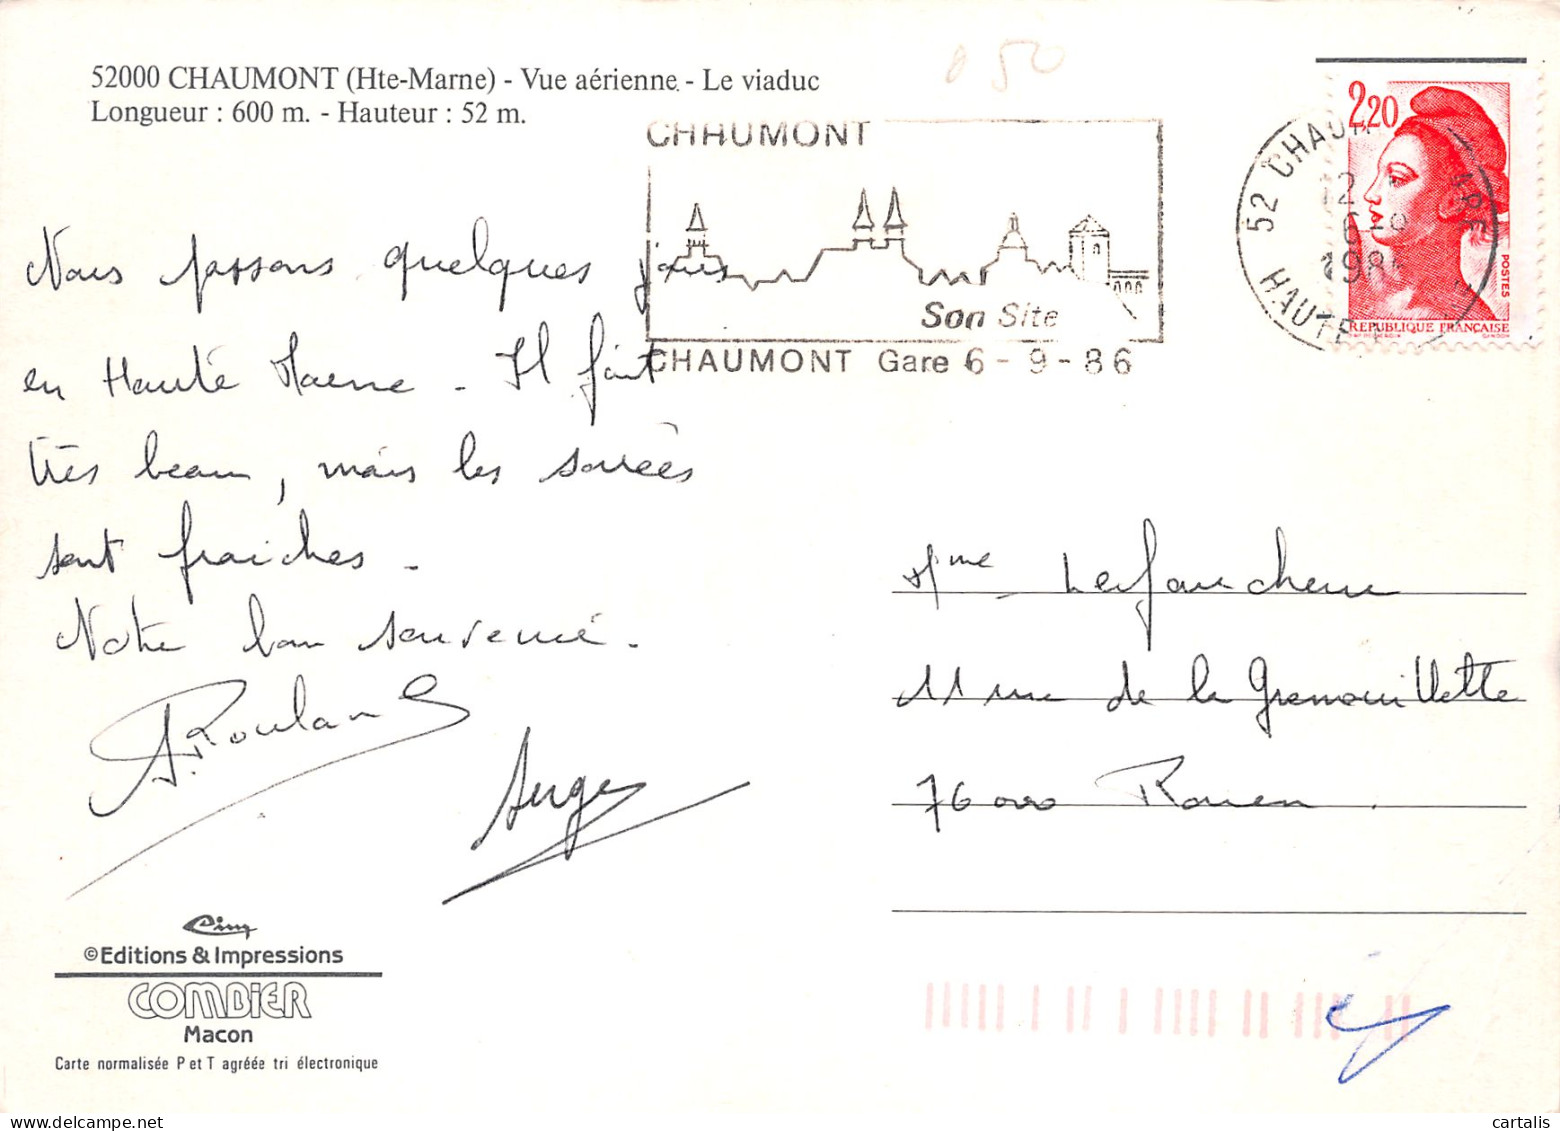 52000 CHAUMONT (Hte-Marne) - Vue aérienne - Le viaduc
Longueur : 600 m. - Hauteur : 52 m.
50
CHAUMONT
Son Site
CHAUMONT Gare 6 - 9 - 86
2,20
POSTES
REPUBLIQUE FRANÇAISE
52 CHAUM
HAUTE
Nous passons quelques jours
en Haute Marne - Il fait
très beau, mais les soirées
sont fraiches -
Notre bon souvenir.
A. Rouland
Serge
Mme Lefaucheur
11 rue de la Grenouillette
76000 Rouen.
Cim
© Editions & Impressions
COMBIER
Macon
Carte normalisée P et T agréée tri électronique
cartalis
www.delcampe.net